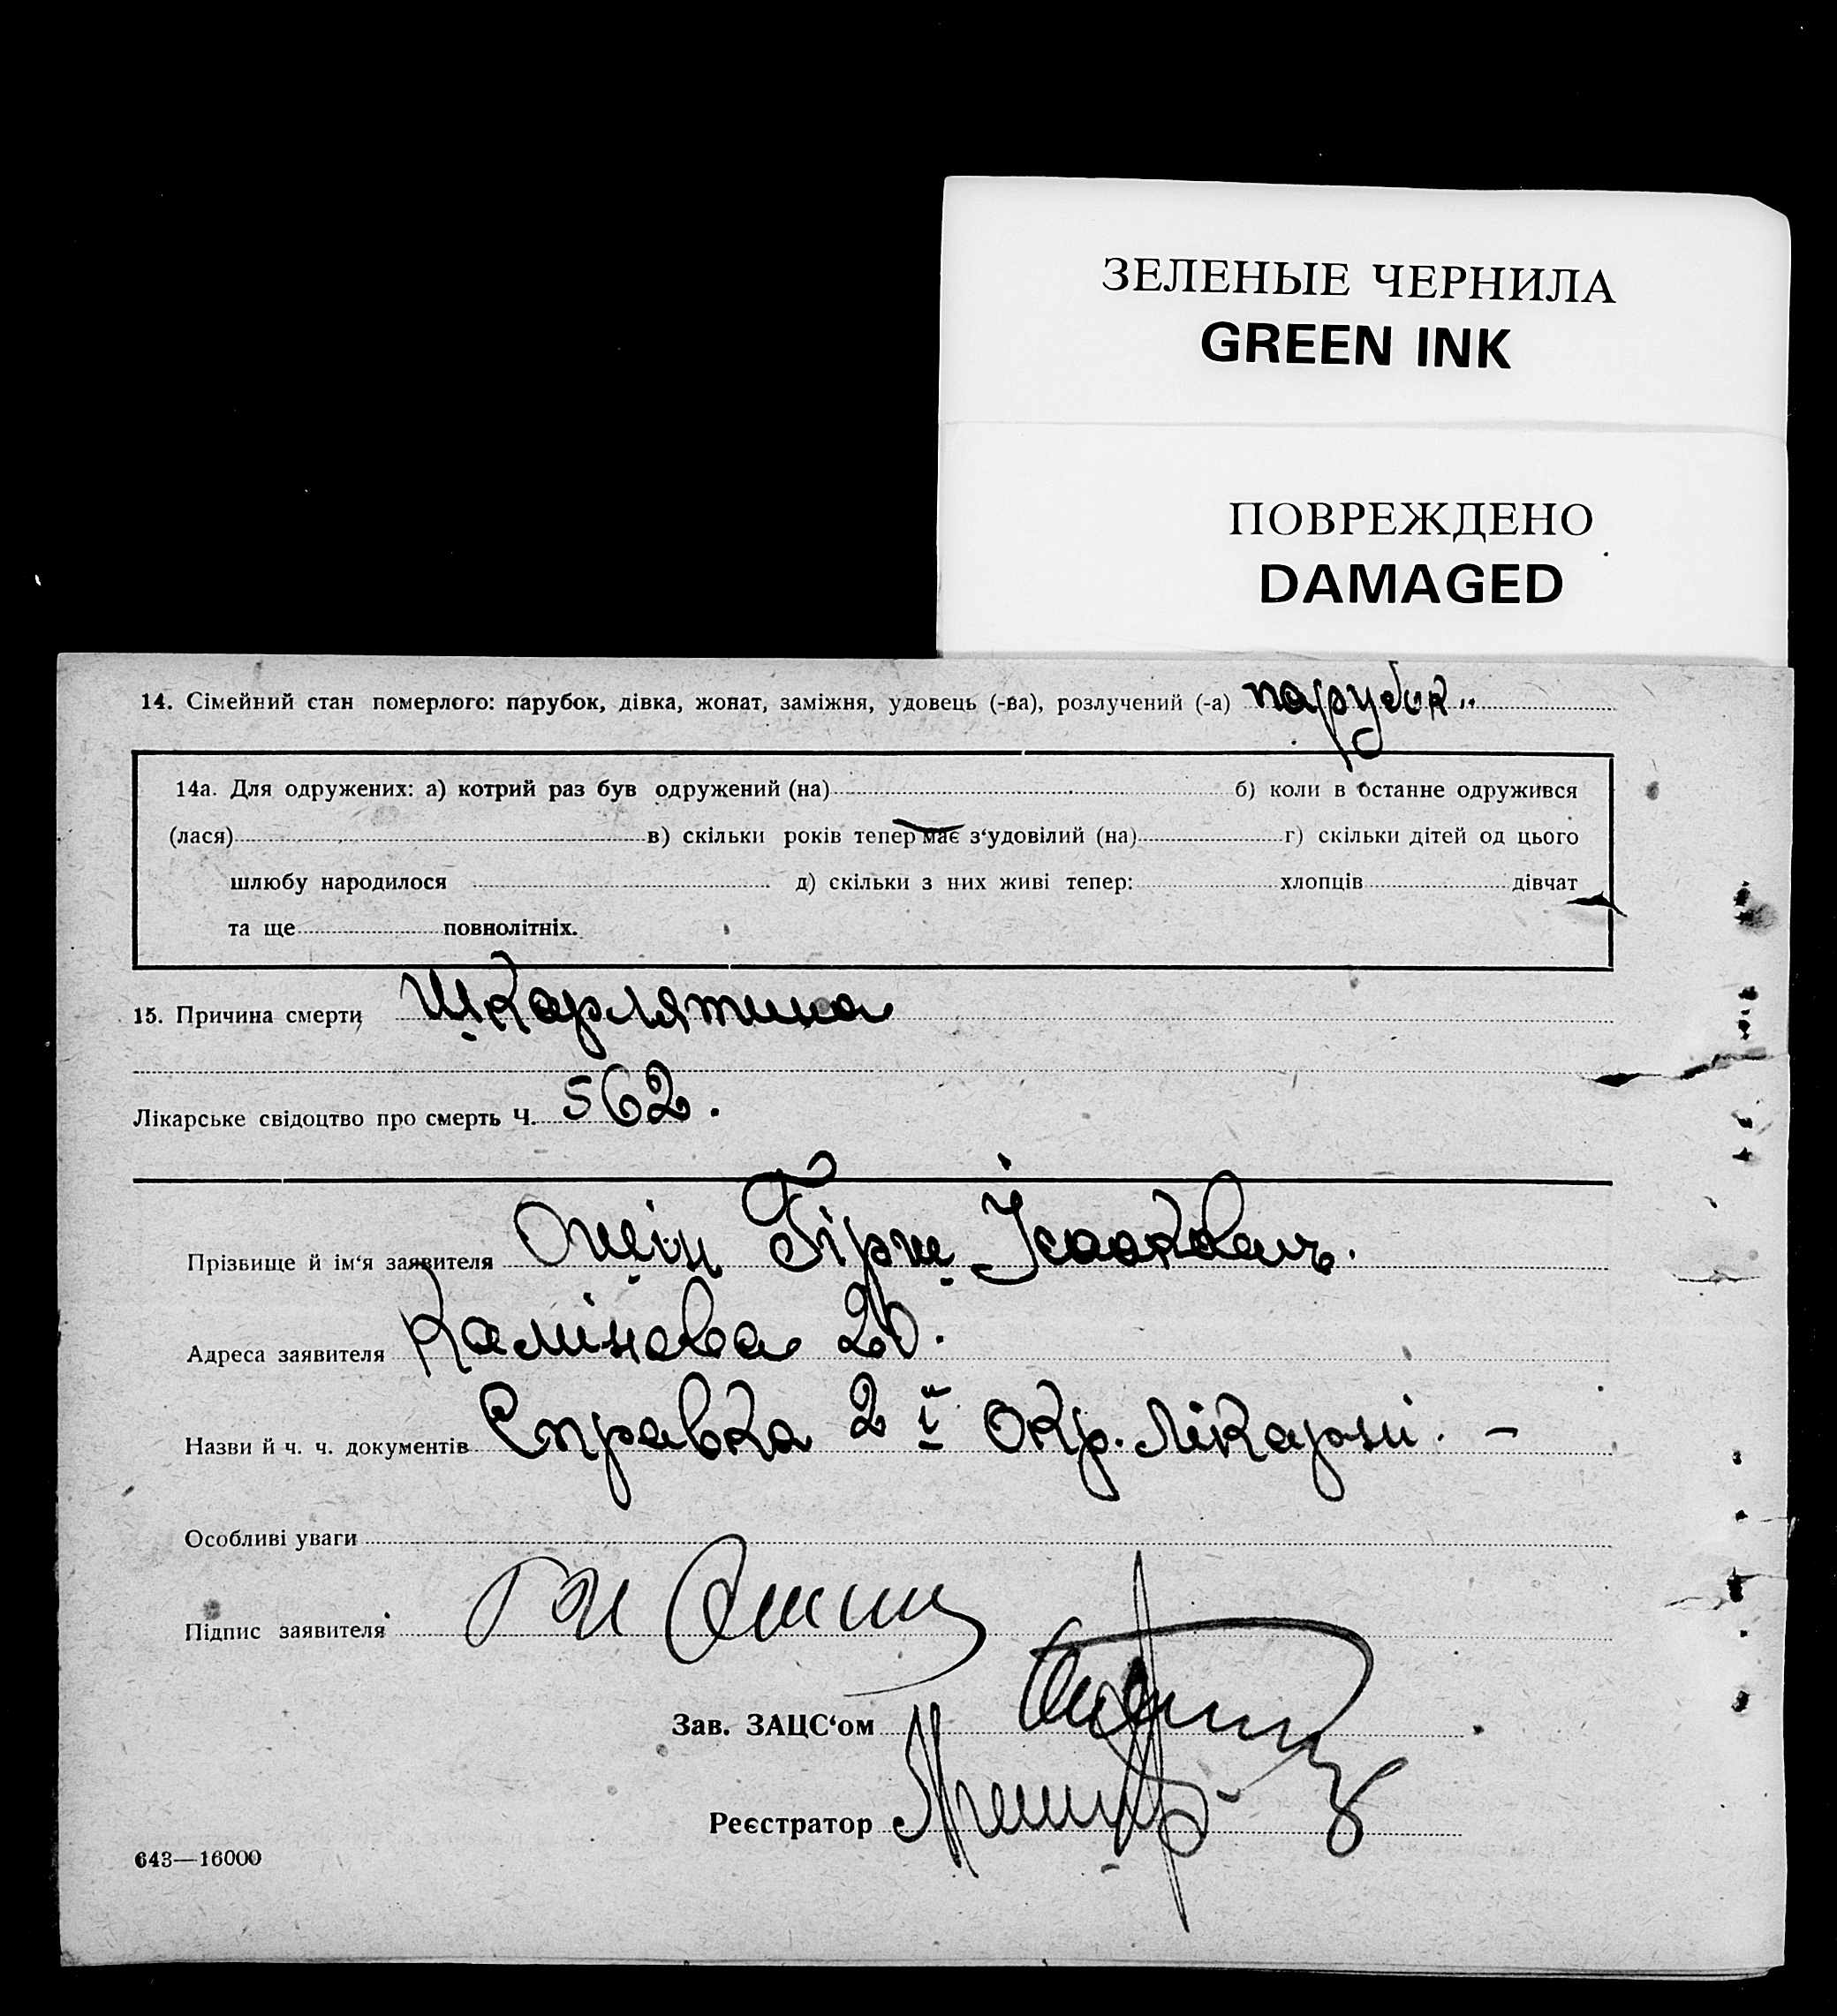 ЗЕЛЕНЫЕ ЧЕРНИЛА
GREEN INK
ПОВРЕЖДЕНО
DAMAGED
14. Сімейний стан померлого: парубок, дівка, жонат, заміжня, удовець (-ва), розлучений (-а) парубок
14а. Для одружених: а) котрий раз був одружений (на) б) коли в останне одружився
(лася) в) скільки років тепер має з‘удовілий (на) г) скільки дітей од цього
шлюбу народилося д) скільки з них живі тепер: хлопців дівчат
та ще повнолітніх.
15. Причина смерти Шкарлятина
Лікарське свідоцтво про смерть Ч. 562.
Прізвище й ім‘я заявителя Ошін Гірш Ісаакович.
Адреса заявителя 20.
Назви й ч. ч. документів Справка 2ї Окр. лікарні. –
Особливі уваги
Підпис заявителя
Зав. ЗАЦС‘ом
Реєстратор
643—16000